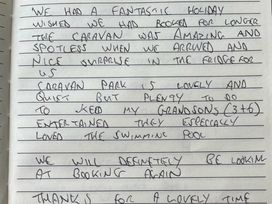 WE HAD A FANTASTIC HOLIDAY
WISHED WE HAD BOOKED FOR LONGER
THE CARAVAN WAS AMAZING AND
SPOTLESS WHEN WE ARRIVED AND
NICE SURPRISE IN THE FRIDGE FOR
US
CARAVAN PARK IS LOVELY AND
QUIET BUT PLENTY TO DO
TO KEEP MY GRANDSONS (3+6)
ENTERTAINED THEY ESPECIALLY
LOVED THE SWIMMING POOL
WE WILL DEFINETELY BE LOOKING
AT BOOKING AGAIN
THANKS FOR A LOVELY TIME